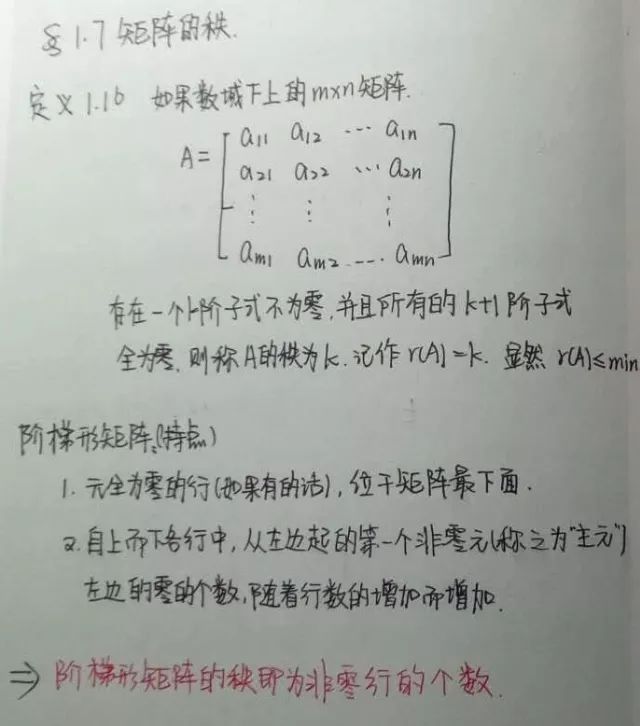 §1.7 矩阵的秩.
定义1.16 如果数域F上的m×n矩阵.
A= [ a11 a12 ⋯ a1n
a21 a22 ⋯ a2n
⋮ ⋮ ⋮
am1 am2 ⋯ amn ]
存在一个k阶子式不为零,并且所有的k+1阶子式
全为零,则称A的秩为k.记作r(A)=k. 显然 r(A)≤min
阶梯形矩阵:(特点)
1. 元全为零的行(如果有的话),位于矩阵最下面.
2.自上而下各行中,从左边起的第一个非零元(称之为"主元")
左边的零的个数,随着行数的增加而增加.
⇒ 阶梯形矩阵的秩即为非零行的个数.